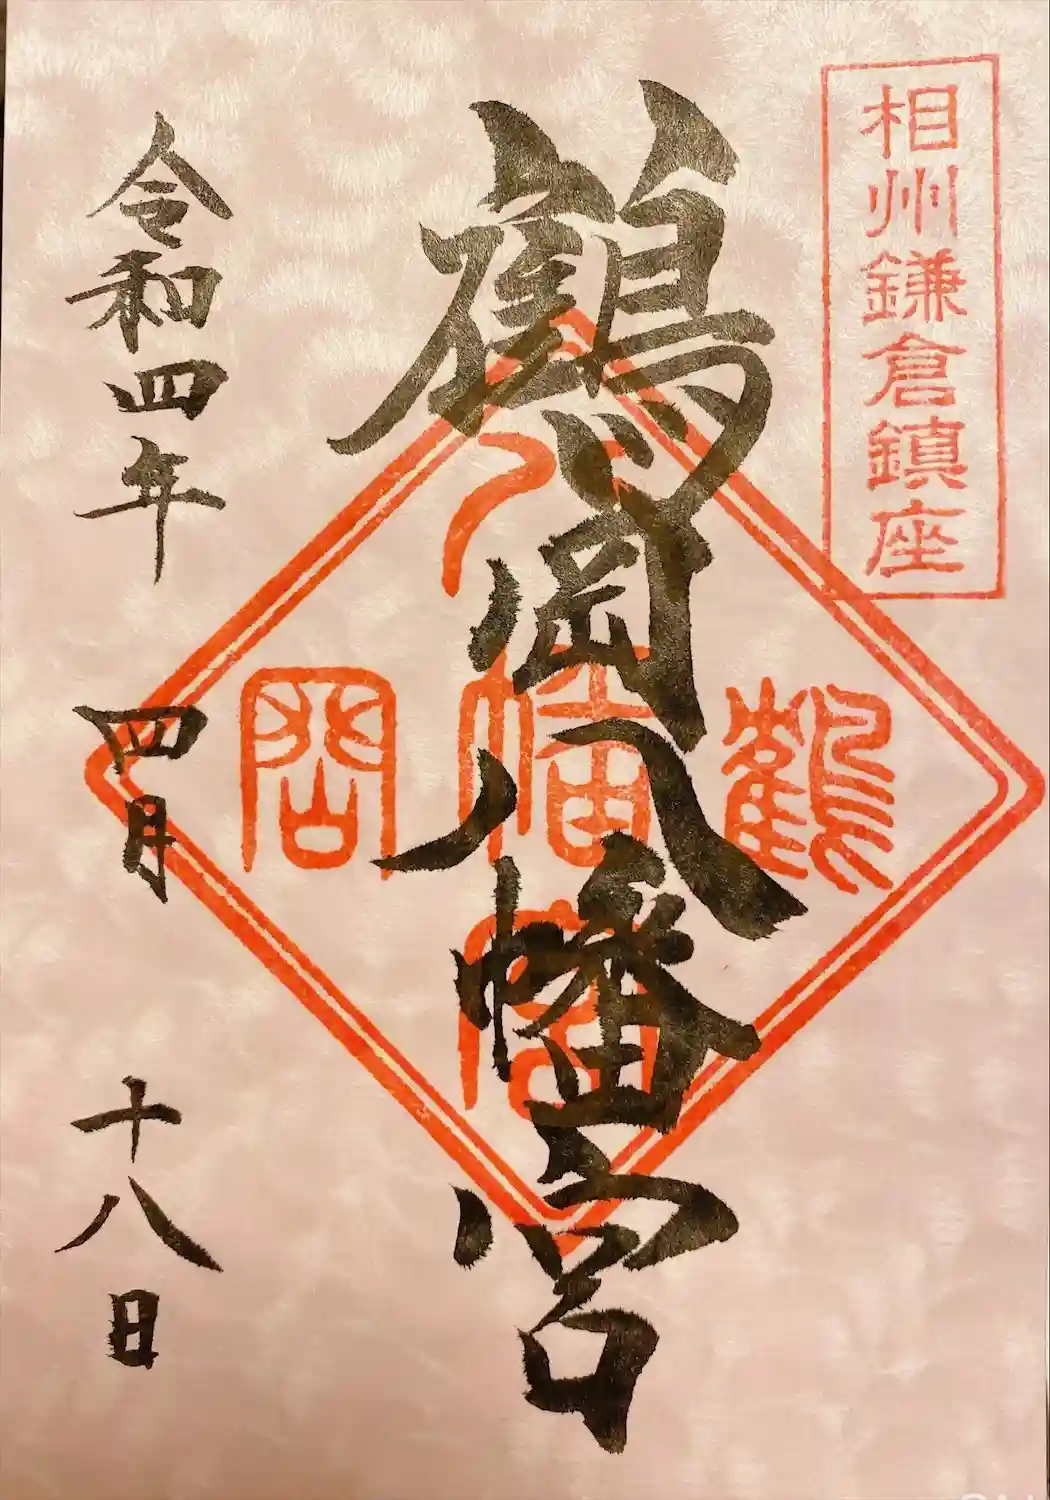 相州鎌倉鎮座
鶴岡八幡宮
鶴
八
幡
宮
岡
令和四年 四月 十八日